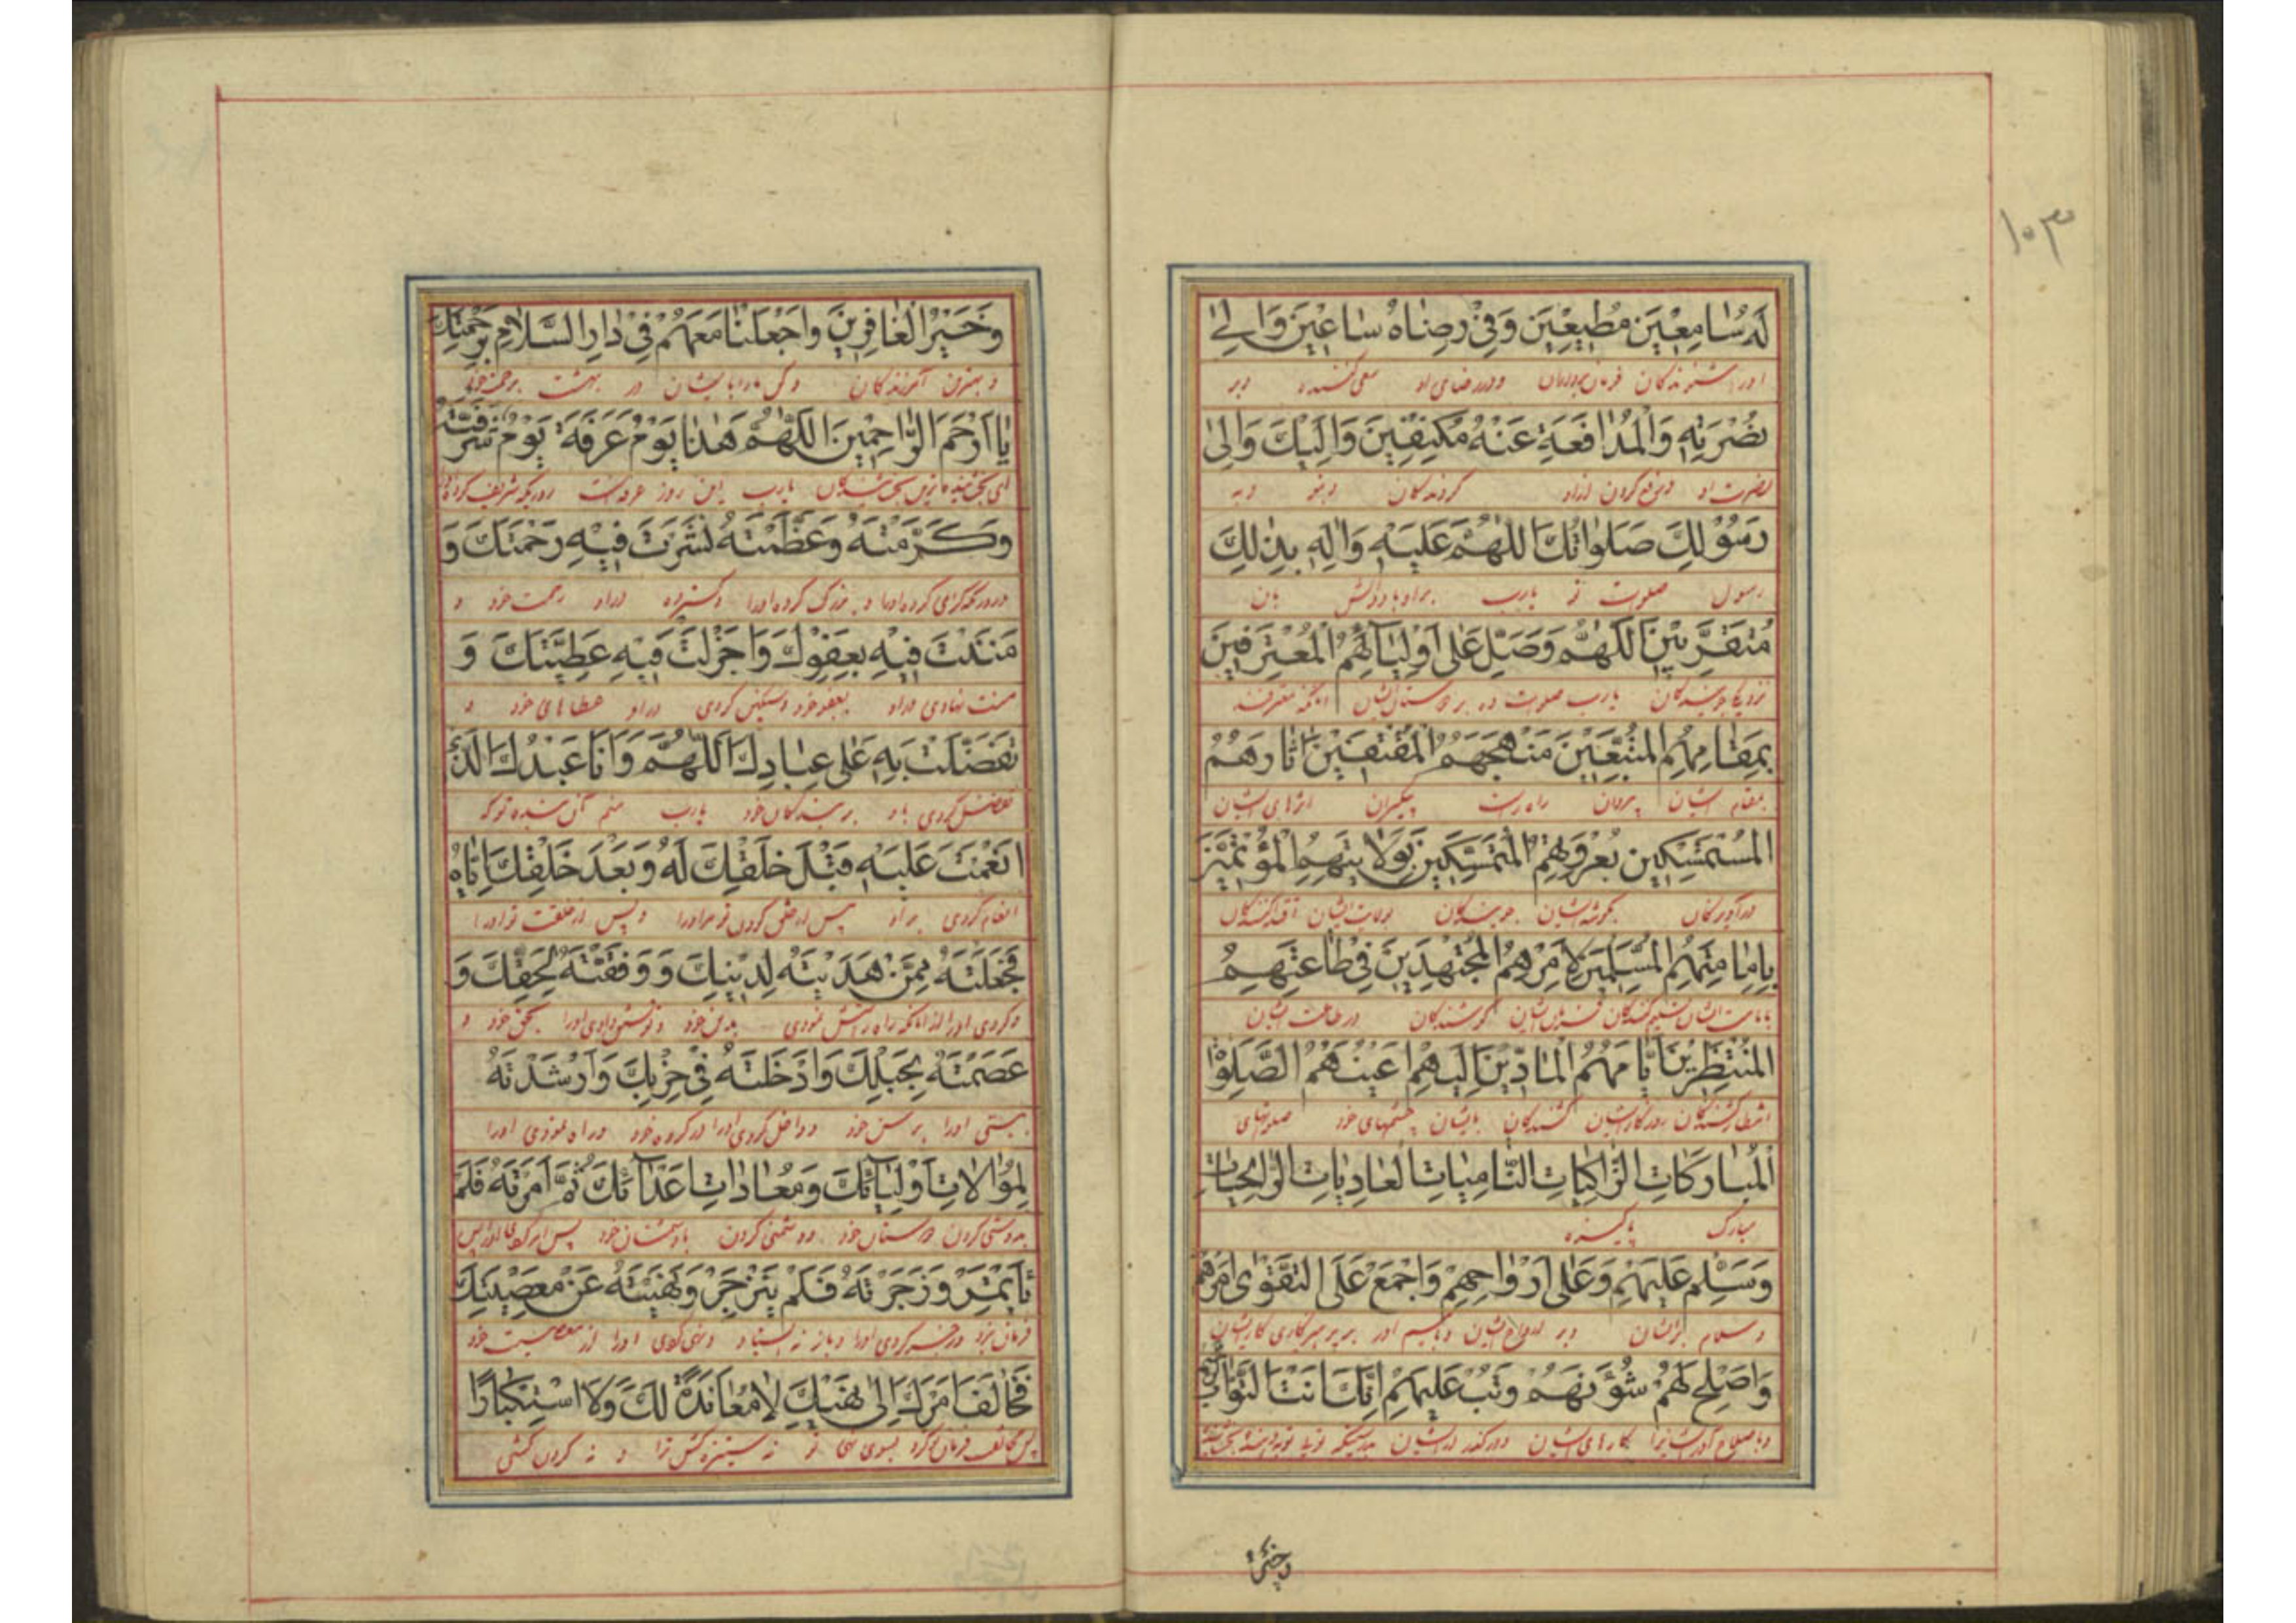 ١٠٣
لَهُ سَامِعِينَ مُطِيعِينَ وَفِي رِضَاهُ سَاعِينَ وَإِلَى
او را شنوندگان فرمان برداران و در رضای او سعی کننده و بر
نُصْرَتِهِ وَالْمُدَافَعَةِ عَنْهُ مُكْنِفِينَ وَإِلَيْكَ وَإِلَى
نصرت او و دفع کردن از او گردندگان و بتو و به
رَسُولِكَ صَلَوَاتُكَ اللَّهُمَّ عَلَيْهِ وَآلِهِ بِذَلِكَ
رسول صلوت تو یارب بر او باد و آلش بان
مُتَقَرِّبِينَ اللَّهُمَّ وَصَلِّ عَلَى أَوْلِيَائِهِمُ الْمُعْتَرِفِينَ
نزدیکی جویندگان یارب صلوت ده بر دوستان ایشان آنکه معترفند
بِمَقَامِهِمُ الْمُتَّبِعِينَ مَنْهَجَهُمُ الْمُقْتَفِينَ آثَارَهُمُ
بمقام ایشان پیروان راه راست اثرهای ایشان
الْمُسْتَمْسِكِينَ بِعُرْوَتِهِمُ الْمُتَمَسِّكِينَ بِوَلَايَتِهِمُ الْمُؤْتَمِّينَ
بگوشه ایشان بولایت ایشان اقتدا کنندگان
بِإِمَامَتِهِمُ الْمُسَلِّمِينَ لِأَمْرِهِمُ الْمُجْتَهِدِينَ فِي طَاعَتِهِمُ
بامامت ایشان تسلیم کنندگان کوشندگان در طاعت ایشان
الْمُنْتَظِرِينَ أَيَّامَهُمُ الْمَادِّينَ إِلَيْهِمْ أَعْيُنَهُمُ الصَّلَوَاتِ
انتظار کشندگان روزگار ایشان کشندگان بایشان چشمهای خود صلوتهای
الْمُبَارَكَاتِ الزَّاكِيَاتِ النَّامِيَاتِ الْغَادِيَاتِ الرَّائِحَاتِ
مبارک پاکیزه
وَسَلِّمْ عَلَيْهِمْ وَعَلَى أَرْوَاحِهِمْ وَاجْمَعْ عَلَى التَّقْوَى أَمْرَهُمْ
و سلام برایشان و بر ارواح ایشان بر پرهیزکاری کار ایشان
وَأَصْلِحْ لَهُمْ شُؤُونَهُمْ وَتُبْ عَلَيْهِمْ إِنَّكَ أَنْتَ التَّوَّابُ الرَّحِيمُ
کارهای ایشان و درگذر از ایشان بدرستیکه
وَخَيْرُ
وَخَيْرُ الْغَافِرِينَ وَاجْعَلْنَا مَعَهُمْ فِي دَارِ السَّلَامِ بِرَحْمَتِكَ
و بهترین آمرزندگان و کن ما را با ایشان در بهشت برحمت خود
يَا أَرْحَمَ الرَّاحِمِينَ اللَّهُمَّ هَذَا يَوْمُ عَرَفَةَ يَوْمٌ شَرَّفْتَهُ
یارب این روز عرفه است روزیکه شریف کرده او را
وَكَرَّمْتَهُ وَعَظَّمْتَهُ نَشَرْتَ فِيهِ رَحْمَتَكَ وَ
و بزرگ کرده او را و گسترده در او رحمت خود و
مَنَنْتَ فِيهِ بِعَفْوِكَ وَأَجْزَلْتَ فِيهِ عَطِيَّتَكَ وَ
منت نهادی در او بعفو خود و سنگین کردی در او عطاهای خود و
تَفَضَّلْتَ بِهِ عَلَى عِبَادِكَ اللَّهُمَّ وَأَنَا عَبْدُكَ الَّذِي
تفضل کردی باو بر بندگان خود یارب منم آن بنده تو که
أَنْعَمْتَ عَلَيْهِ قَبْلَ خَلْقِكَ لَهُ وَبَعْدَ خَلْقِكَ إِيَّاهُ
انعام کردی بر او پیش از خلق کردن تو مر او را و پس از خلقت تو او را
فَجَعَلْتَهُ مِمَّنْ هَدَيْتَهُ لِدِينِكَ وَوَفَّقْتَهُ لِحَقِّكَ وَ
و کردی او را از آنانکه راه راستش نمودی بدین خود و توفیق دادی او را بحق خود و
عَصَمْتَهُ بِحَبْلِكَ وَأَدْخَلْتَهُ فِي حِزْبِكَ وَأَرْشَدْتَهُ
بستی او را برسن خود و داخل کردی او را در گروه خود و راه نمودی او را
لِمُوَالَاتِ أَوْلِيَائِكَ وَمُعَادَاتِ أَعْدَائِكَ ثُمَّ أَمَرْتَهُ فَلَمْ
بدوستی کردن دوستان خود و دشمنی کردن با دشمنان خود پس امر کردی او را پس
يَأْتَمِرْ وَزَجَرْتَهُ فَلَمْ يَنْزَجِرْ وَنَهَيْتَهُ عَنْ مَعْصِيَتِكَ
فرمان نبرد و زجر کردی او را و باز نه ایستاد و نهی کردی او را از معصیت خود
فَخَالَفَ أَمْرَكَ إِلَى نَهْيِكَ لَا مُعَانَدَةً لَكَ وَلَا اسْتِكْبَارًا
پس مخالفت فرمان تو کرد بسوی نهی تو نه ستیزه کنی ترا و نه گردن کشی